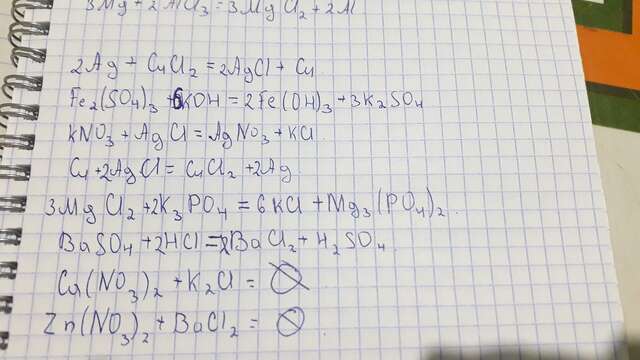 3Mg + 2AlCl3 = 3MgCl2 + 2Al
2Ag + CuCl2 = 2AgCl + Cu
Fe2(SO4)3 + 6KOH = 2Fe(OH)3 + 3K2SO4
KNO3 + AgCl = AgNO3 + KCl
Cu + 2AgCl = CuCl2 + 2Ag
3MgCl2 + 2K3PO4 = 6KCl + Mg3(PO4)2.
BaSO4 + 2HCl = 2BaCl2 + H2SO4
Cu(NO3)2 + K2Cl = ∅
Zn(NO3)2 + BaCl2 = ∅